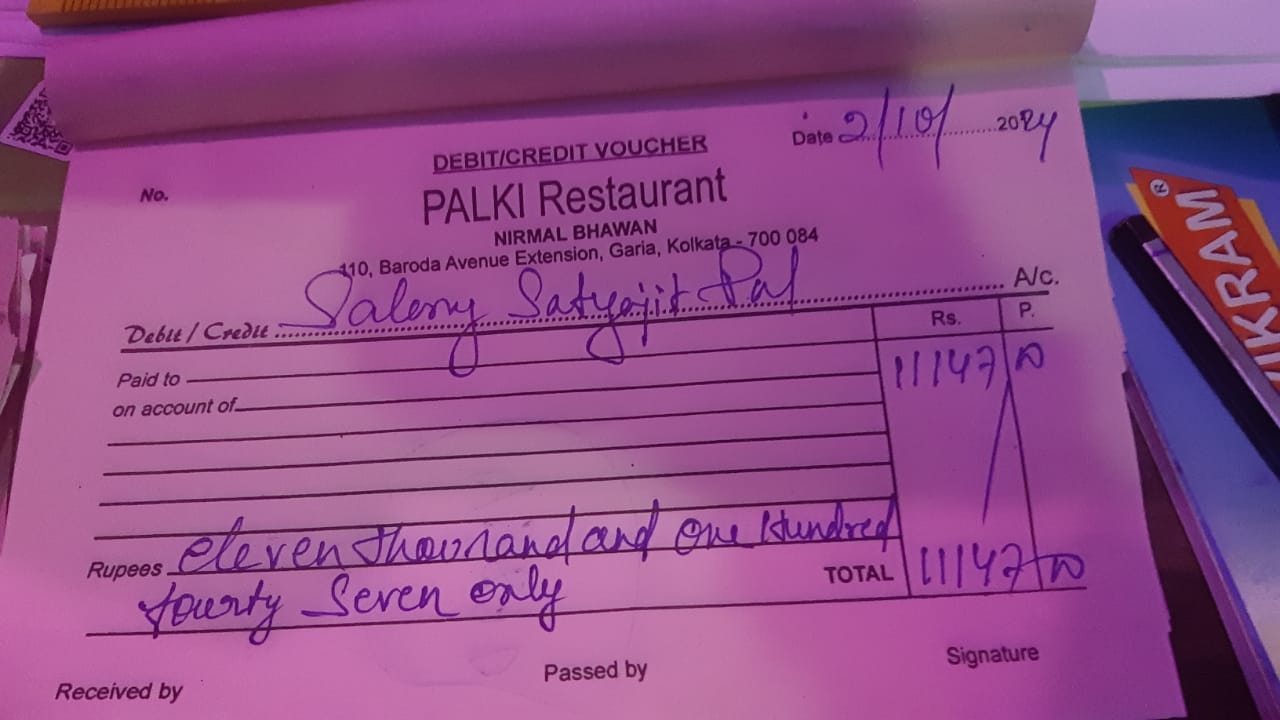 Date 2/10/ 2024
DEBIT/CREDIT VOUCHER
No.
PALKI Restaurant
NIRMAL BHAWAN
110, Baroda Avenue Extension, Garia, Kolkata - 700 084
Debit / Credit Salery Satyajit Pal A/c.
Rs. P.
Paid to 11147 00
on account of
Rupees eleven thousand and one Hundred
fourty Seven only TOTAL 11147 00
Received by Passed by Signature
VIKRAM®